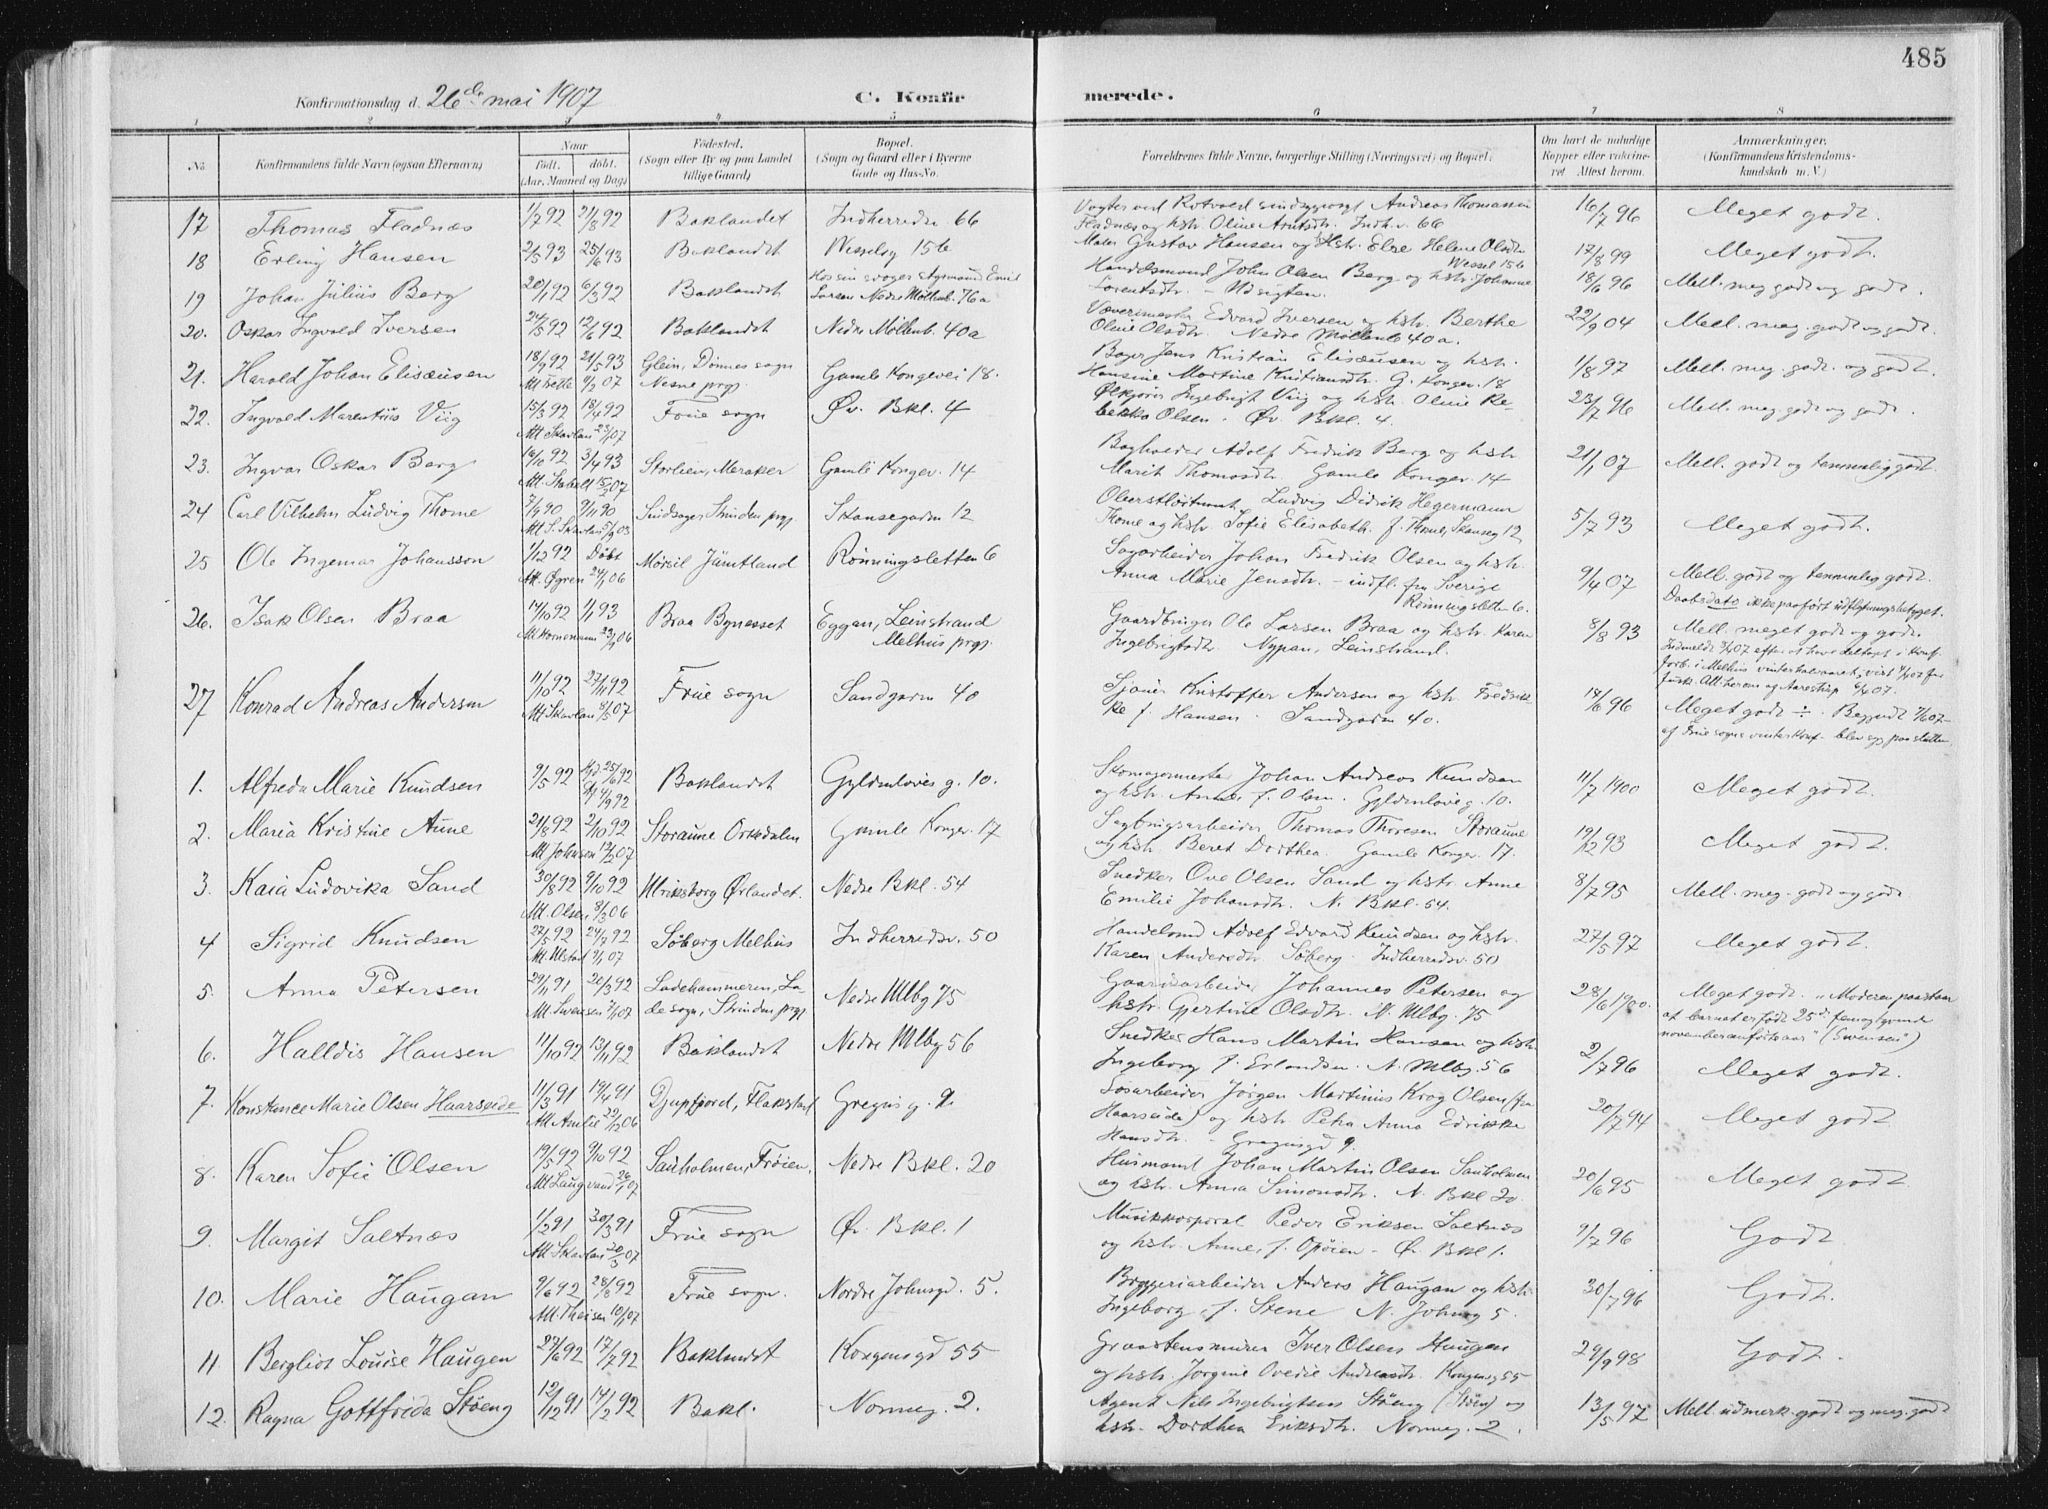 485
Konfirmationsdag d. 26de mai 1907 C. Konfirmerede.
1 2 3 4 5 6 7 8
No Konfirmandens fulde Navn (ogsaa Efternavn) Naar Født. døbt. (Aar, Maaned og Dag) Fødested. (Sogn eller By og paa Landet tillige Gaard) Bopæl. (Sogn og Gaard eller i Byerne Gade og Hus-No. Forældrenes fulde Navne, borgerlige Stilling (Næringsvei) og Bopæl. Om havt de naturlige Kopper eller vakcineret. Attest herom. Anmærkninger. (Konfirmandens Kristendomskundskab m. V.)
17 Thomas Fladnæs 1/7 92 21/8 92 Baklandet Indherredsv 66 Andreas Thomassen
Fladnæs og hstr. Oline Indh.v. 66 16/7 96 Meget godt.
18 Erling Hansen 2/5 93 25/6 93 Baklandet Wesselsg 15b Maler Gustav Hansen og Hstr. Else Helene Olsdtr
Wessel 15b 17/8 99 Meget godt.
19 Johan Julius Berg 20/1 92 6/3 92 Baklandet Hos sin svoger Emil
Larsen Nedre Møllenb. 76a Handelsmand John Olsen Berg og hstr. Johanne
Lorentsdtr. - Udsigten. 18/6 96 Mell. meg godt og godt.
20. Oskar Ingvald Iversen 24/5 92 12/6 92 Baklandet Nedre Møllenb. 40a Værmester Edvard Iversen og hstr. Berthe
Oline Olsdtr. Nedre Møllenb 40a. 22/9 04 Mell. meg. godt og godt.
21. Harald Johan Elisæusen 18/9 92 21/5 93 Glein, Dønnes sogn Gamle Kongevei 18. Bager Jens Kristian Elisæusen og hstr.
Att Fetle 9/2 07 Nesne prgj. Hansine Martine Kristiansdtr. G. Kongev. 18 1/8 97 Mell. meg. godt. og godt.
22. Ingvald Marentius Viig 15/3 92 18/4 92 Frue sogn Øv. Bkl. 4 Ølkjører Ingebrigt Viig og hstr. Oline Re-
Att Skavlan 23/1 07 bekka Olsen. Øv. Bkl. 4. 23/7 96 Mell. meg. godt og godt.
23. Ingvar Oskar Berg 16/10 92 3/4 93 Storlien, Meraker Gamle Kongev. 14 Adolf Fredrik Berg og hstr
Marit Thomasdtr. Gamle Kongev. 14 21/1 07 Mell. godt og temmelig godt.
24 Carl Vilhelm Ludvig Thome 7/9 90 9/11 90 Strinden prgj Skansegaten 12 Oberstløitnant Ludvig Didrik Hegermann
Att S. Skavlan 5/9 03 Thome og hstr. Sofie Elisabeth f. Thome, Skanseg 12 5/7 93 Meget godt.
25 Ole Ingemar Johansson 1/12 92 Døbt Mörsil Jämtland Rønningsletten 6 Sagarbeider Johan Fredrik Olsen og hstr.
Att. Øgren 24/1 06 Anna Marie Jensdtr. - indfl. fra Sverige
Rønningsletten 6. 9/4 07 Mell. godt og temmelig godt.
Daabsdato ikke paaført udflytningsbetyget.
26. Isak Olsen Braa 14/10 92 1/1 93 Braa Bynesset Eggan, Leinstrand
Att Hornemann 23/9 06 Melhus prgj. Gaardbruger Ole Larsen Braa og hstr. Karen
Ingebrigtsdtr. Nypan, Leinstrand. 8/8 93 Mell. meget godt og godt.
27 Konrad Andreas Andersen 11/10 92 27/11 92 Frue sogn Sandgaten 40 Sjauer Kristoffer Andersen og hstr. Fredrik-
Att Skavlan 8/5 07 ke f. Hansen. Sandgaten 40. 18/6 96 Meget godt ÷.
af Frue sogns vinterkonf - blev syg paa slutten
1. Alfreda Marie Knudsen 9/5 92 Baklandet Gyldenløves g. 10. Skomagermester Johan Andreas Knudsen
og hstr. Anna f. Olsen. Gyldenløveg. 10. 11/7 1900 Meget godt.
2. Maria Kristine Aune 21/8 92 2/10 92 Storaune Orkedalen Gamle Kongev. 17 Sagbrugsarbeider Thomas Thoresen Storaune
Att Johnson 12/2 07 og hstr. Beret Dorthea. Gamle Kongev. 17. 19/12 93 Meget godt.
3. Kaia Ludovika Sand 30/8 92 9/10 92 Ulriksborg Ørlandet. Nedre Bkl. 54 Snedker Ove Olsen Sand og hstr. Anne
Att. Olsen 8/3 06 Emilie Johansdtr. N. Bkl. 54. 8/7 95 Mell. meg. godt og godt
4 Sigrid Knudsen 27/5 92 24/7 92 Søberg Melhus Indherredsv. 50 Handelsmd Adolf Edvard Knudsen og hstr.
Att. Ulstad 9/1 07 Karen Andersdtr Søberg. Indherredsv. 50 27/5 97 Meget godt.
5. Anna Petersen 29/11 91 20/3 92 Ladehammeren, La- Nedre Mlbg 75 Gaardsarbeider Johannes Petersen og
Att Swensen 7/1 07 de sogn, Strinden prgj hstr. Gjertine Olsdtr. N. Mlbg. 75 28/6 1900. Meget godt. "Moderen paastaar
at barnet er født 25de femogtyvende
november " (Swensen")
6. Halldis Hansen 11/10 92 13/11 92 Baklandet Nedre Mlbg 56 Snedker Hans Martin Hansen og hstr.
Ingeborg f. Erlandsen. N. Mlbg. 56 2/7 96 Meget godt.
7. Konstance Marie Olsen Haarseide 11/3 91 19/4 91 Djupfjord, Flakstad Gregus g. 9. Løsarbeider Jørgen Martinius Krog Olsen (fra
Att Amlie 29/12 06 Haarseide) og hstr. Petra Anna Edrikke
Hansdtr. - Gregusgd 9. 20/7 94 Meget godt
8. Karen Sofie Olsen 19/5 92 9/10 92 Sauholmen, Frøien. Nedre Bkl. 20 Husmand Johan Martin Olsen Sauholmen
Att Laugsand 26/1 07 og hstr. Anna Simonsdtr. N. Bkl 20. 20/6 95 Meget godt
9. Margit Saltnæs 1/2 91 30/3 91 Frue sogn Øv. Bkl. 1 Musikkorporal Peder Eriksen Saltnæs
Att Skavlan 20/3 07 og hstr. Anne, f. Opøien - Øv. Bkl 1. 9/7 96 Godt
10. Marie Haugan 9/6 92 28/8 92 Frue sogn. Nordre Johnsgd. 5. Bryggeriarbeider Anders Haugan og hstr.
Att. Theisen 10/1 07 Ingeborg f. Stene N. Johnsg 5. 30/7 96 Godt.
11. Bergliot Louise Haugen 27/6 92 17/7 92 Baklandet Kongensgd 55 Graastensmurer Iver Olsen Haugen
og hstr. Jørgine Ovedie Andreasdtr. Kongensg 55 29/9 98 Godt.
12. Ragna Gottfrida Støeng 12/12 91 14/2 92 Bakl. Norneg. 2. Agent Nils Ingebrigtsen Støeng (Støen) og
hstr. Dorthea Eriksdtr. Norneg. 2. 13/5 97 Mell. udmerk. godt og meg. godt